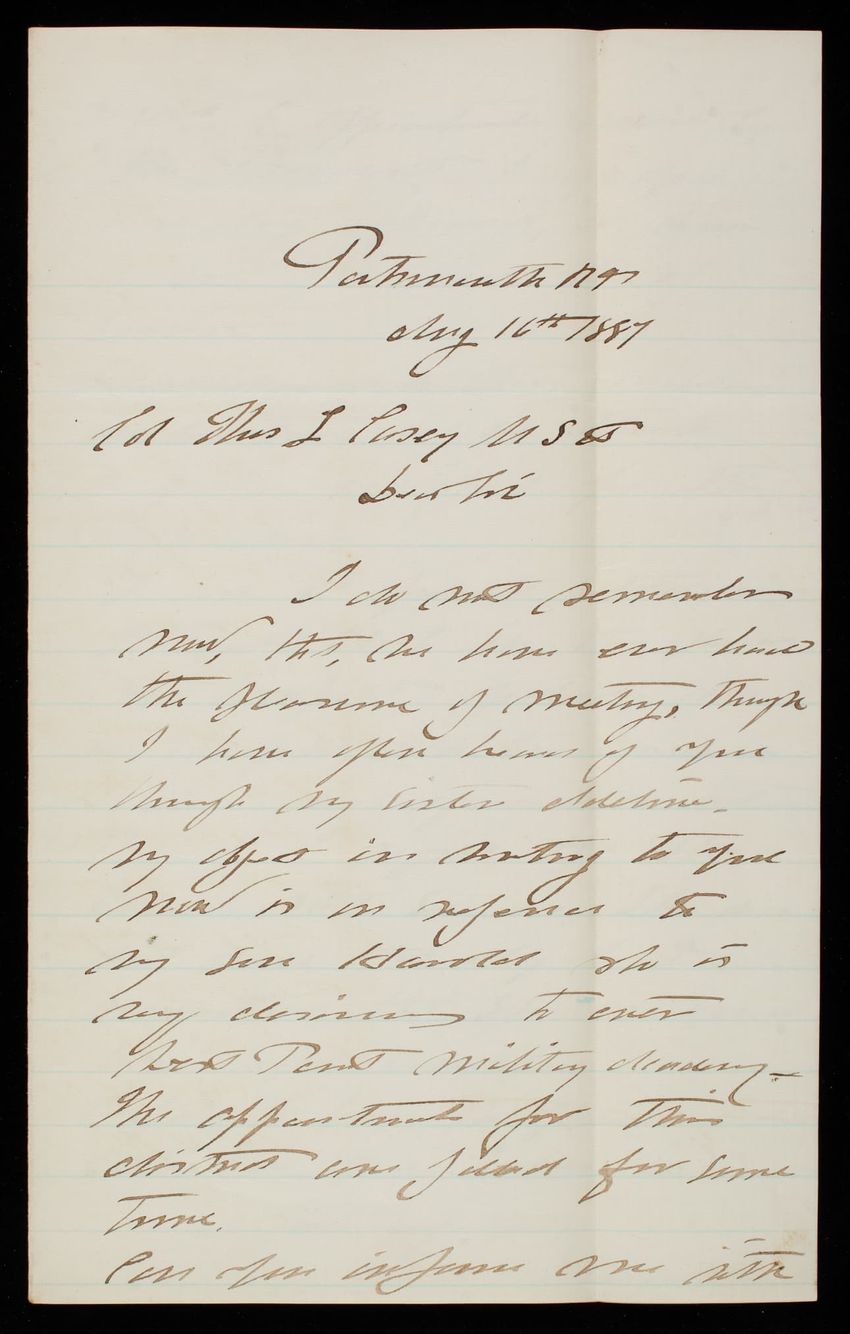 Portsmouth NH
Aug 16th 1887
Col Thos L Casey U S A
Dear Sir
I do not remember
now, that, we have ever had
the pleasure of meeting, though
I have often heard of you
through my sister Adeline.
My object in writing to you
now is in reference to
my son Harold who is
very desirous to enter
West Point Military Academy.
The appointments for this
district are filled for some
time.
Can you inform me